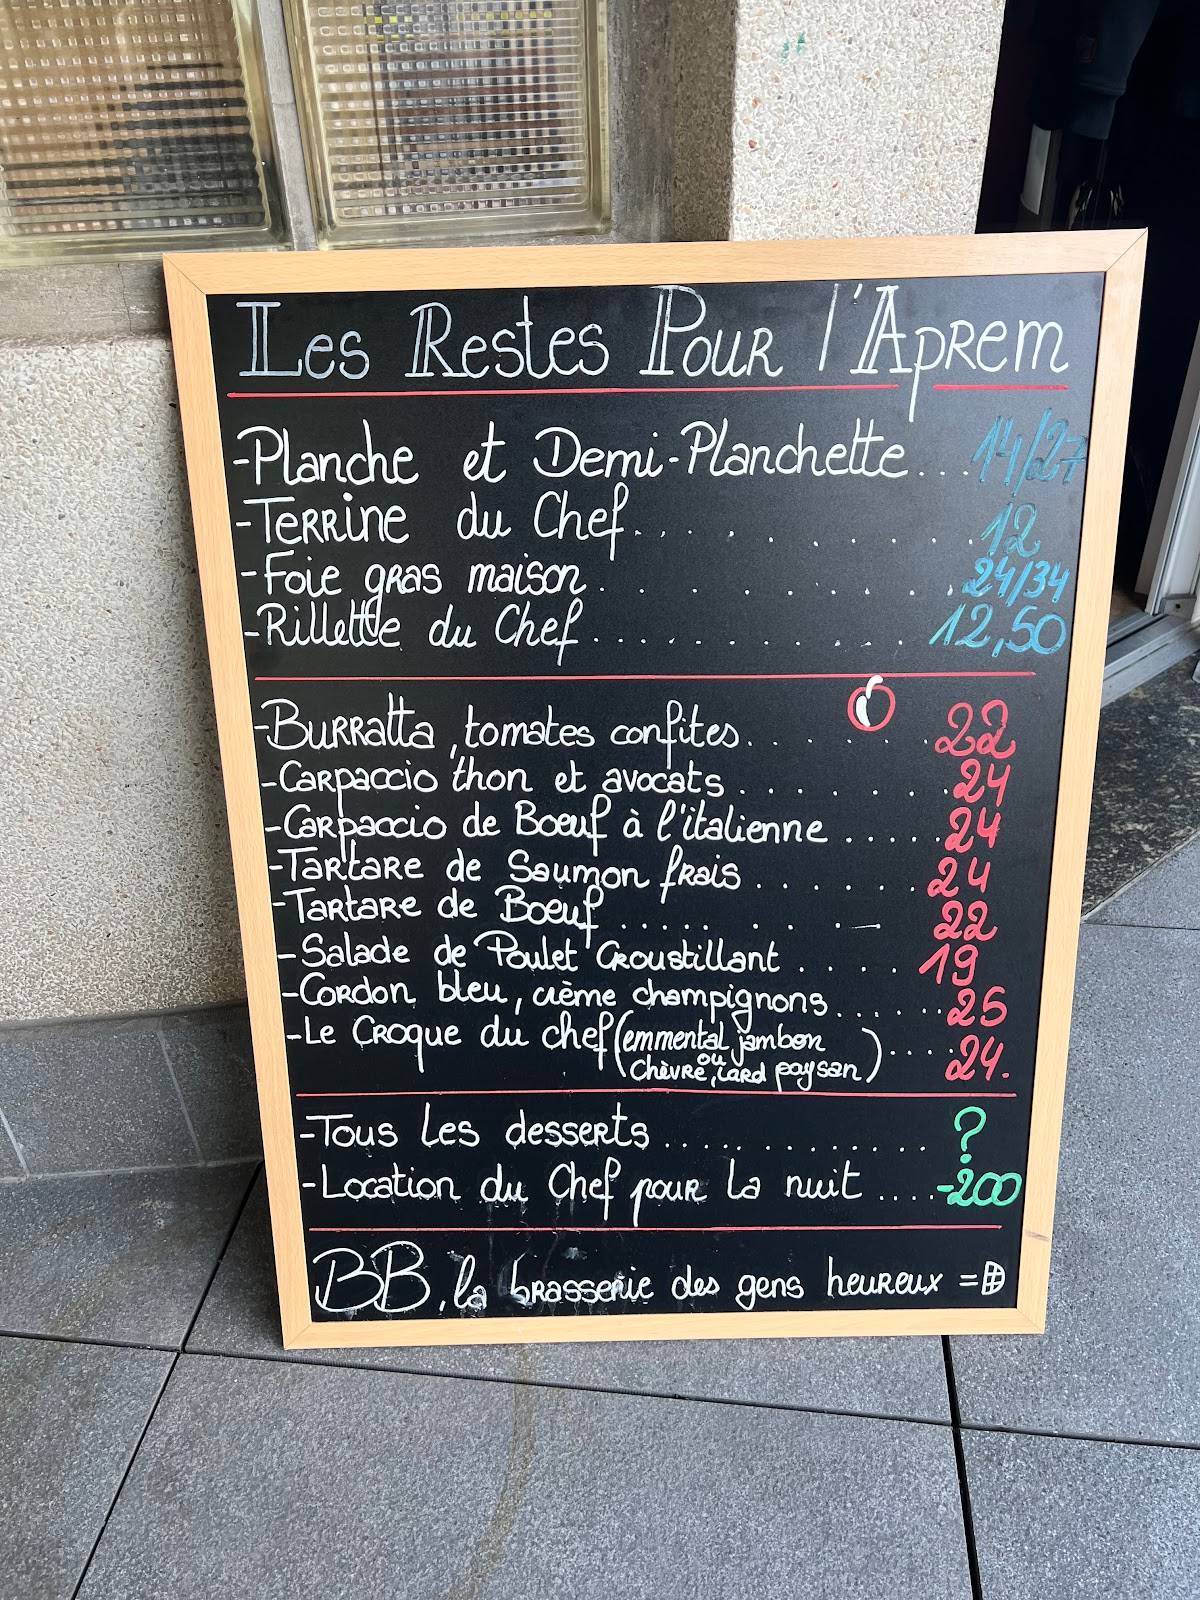 Les Restes Pour l'Aprem
-Planche et Demi-Planchette... 14/27
-Terrine du Chef.......... 12
-Foie gras maison.......... 24/34
-Rillette du Chef............ 12,50
-Burratta, tomates confites....... 22
-Carpaccio thon et avocats........ 24
-Carpaccio de Boeuf à l'italienne..... 24
-Tartare de Saumon frais....... 24
-Tartare de Boeuf........ 22
-Salade de Poulet Croustillant.... 19
-Cordon bleu, crème champignons...... 25
-Le Croque du chef (emmental jambon
ou
Chèvre, lard paysan).... 24.
-Tous les desserts............ ?
-Location du Chef pour la nuit....-200
BB, la brasserie des gens heureux =